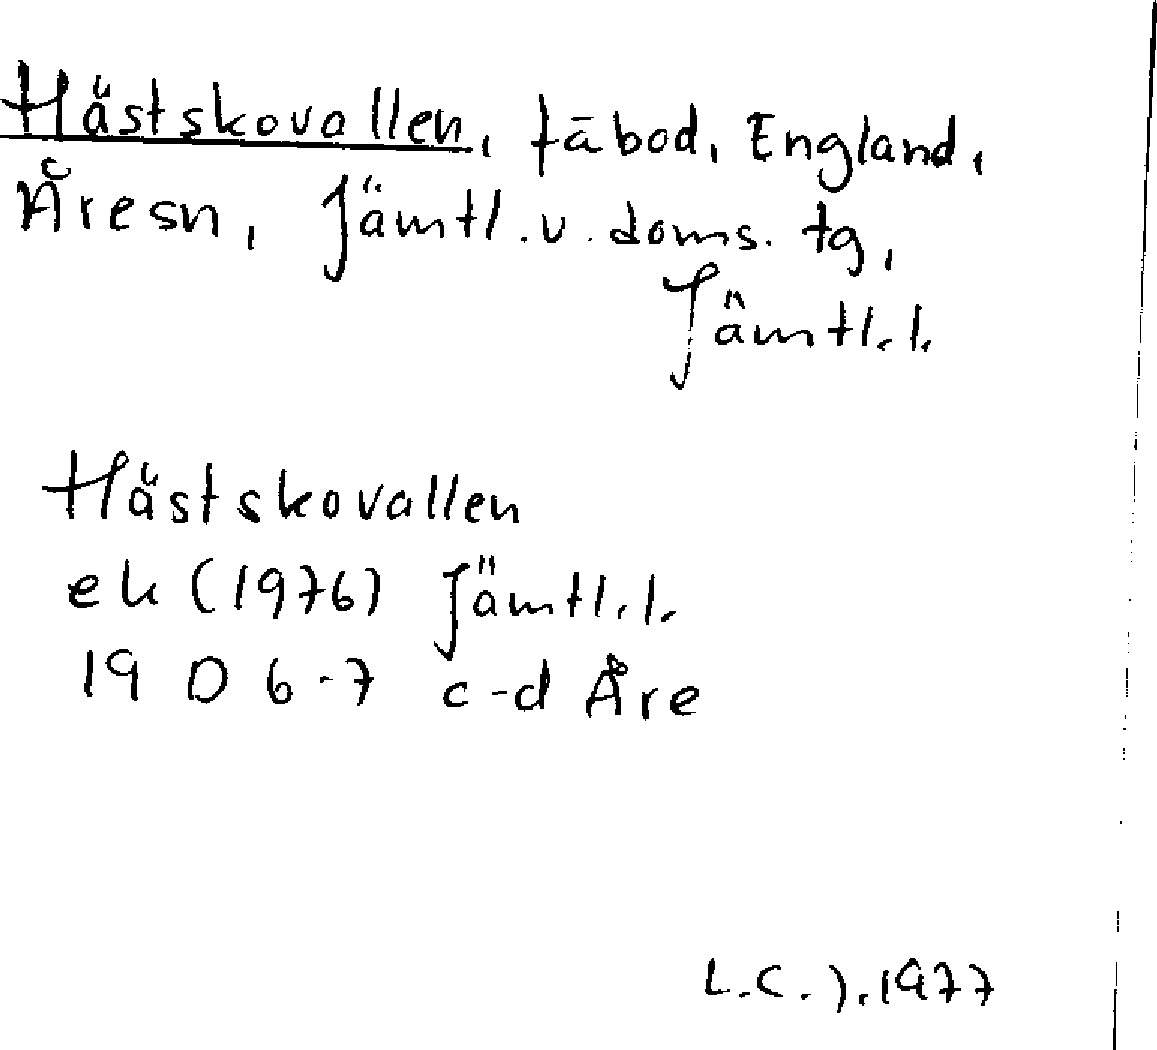 Hästskovallen, fäbod, England,
Åresn, Jämtl.v.doms.tg,
Jämtl.l.
Hästskovallen
ek (1976) Jämtl.l.
19 D 6-7 c-d Åre
L.C.J.1977